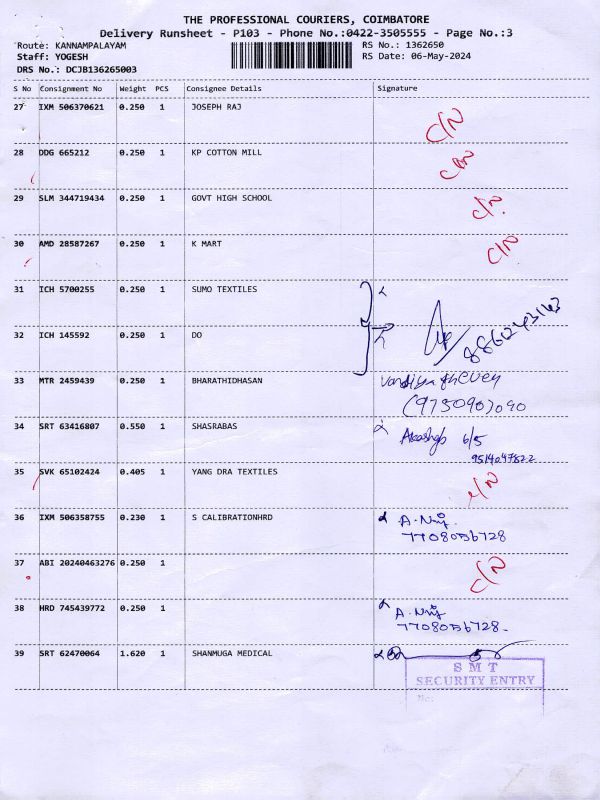 THE PROFESSIONAL COURIERS, COIMBATORE
Delivery Runsheet - P103 - Phone No.:0422-3505555 - Page No.:3
Route: KANNAMPALAYAM RS No.: 1362650
Staff: YOGESH RS Date: 06-May-2024
DRS No.: DCJB136265003
S No Consignment No Weight PCS Consignee Details Signature
27 IXM 506370621 0.250 1 JOSEPH RAJ C/N
28 DDG 665212 0.250 1 KP COTTON MILL
29 SLM 344719434 0.250 1 GOVT HIGH SCHOOL C/N
30 AMD 28587267 0.250 1 K MART C/N
31 ICH 5700255 0.250 1 SUMO TEXTILES
32 ICH 145592 0.250 1 DO
33 MTR 2459439 0.250 1 BHARATHIDHASAN
34 SRT 63416807 0.550 1 SHASRABAS 6/5
9514047822
35 SVK 65102424 0.405 1 YANG DRA TEXTILES C/N
36 IXM 506358755 0.230 1 S CALIBRATIONHRD
7708056728
37 ABI 20240463276 0.250 1 C/N
38 HRD 745439772 0.250 1
7708056728
39 SRT 62470064 1.620 1 SHANMUGA MEDICAL
S M T
SECURITY ENTRY
No: